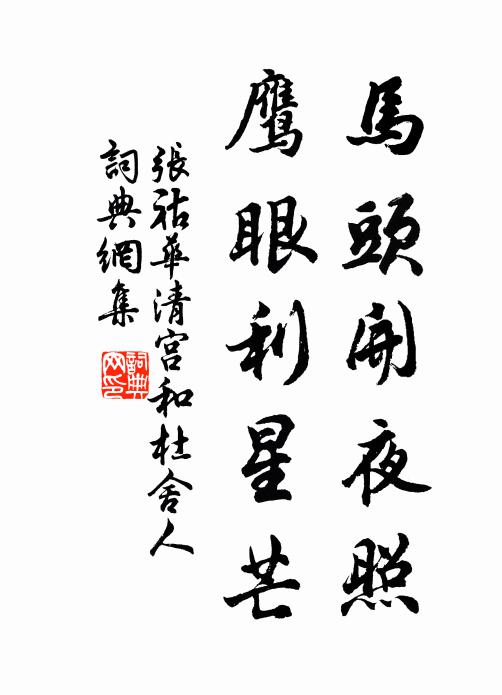 馬頭開夜照
鷹眼利星芒
張祜華清宮和杜舍人
詞典網集
詞典网印